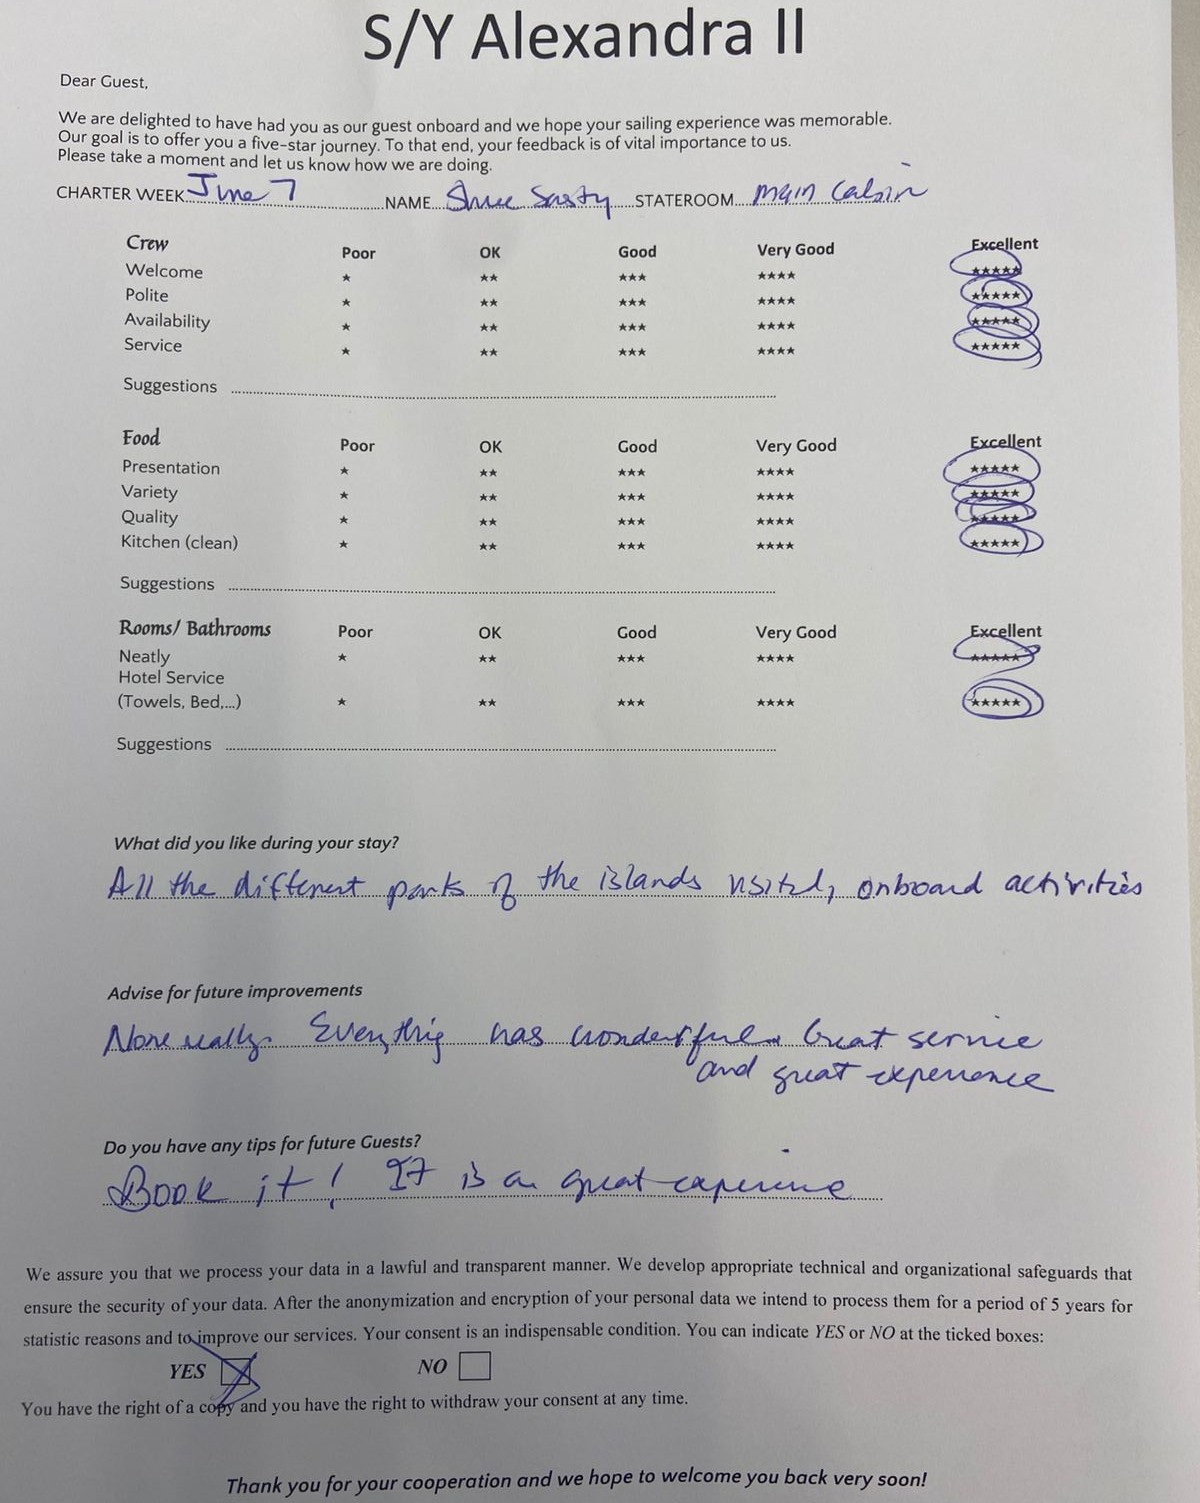 S/Y Alexandra II
Dear Guest,
We are delighted to have had you as our guest onboard and we hope your sailing experience was memorable.
Our goal is to offer you a five-star journey. To that end, your feedback is of vital importance to us.
Please take a moment and let us know how we are doing.
CHARTER WEEK June 7 NAME STATEROOM Main Cabin
Crew Poor OK Good Very Good Excellent
Welcome ★ ★★ ★★★ ★★★★ ★★★★★
Polite ★ ★★ ★★★ ★★★★ ★★★★★
Availability ★ ★★ ★★★ ★★★★ ★★★★★
Service ★ ★★ ★★★ ★★★★ ★★★★★
Suggestions
Food Poor OK Good Very Good Excellent
Presentation ★ ★★ ★★★ ★★★★ ★★★★★
Variety ★ ★★ ★★★ ★★★★ ★★★★★
Quality ★ ★★ ★★★ ★★★★ ★★★★★
Kitchen (clean) ★ ★★ ★★★ ★★★★ ★★★★★
Suggestions
Rooms/ Bathrooms Poor OK Good Very Good Excellent
Neatly ★ ★★ ★★★ ★★★★ ★★★★★
Hotel Service
(Towels, Bed,...) ★ ★★ ★★★ ★★★★ ★★★★★
Suggestions
What did you like during your stay?
All the different parts of the islands visited, onboard activities
Advise for future improvements
None really. Everything was wonderful. Great service
and great experience
Do you have any tips for future Guests?
Book it! It is a great experience
We assure you that we process your data in a lawful and transparent manner. We develop appropriate technical and organizational safeguards that
ensure the security of your data. After the anonymization and encryption of your personal data we intend to process them for a period of 5 years for
statistic reasons and to improve our services. Your consent is an indispensable condition. You can indicate YES or NO at the ticked boxes:
YES NO
You have the right of a copy and you have the right to withdraw your consent at any time.
Thank you for your cooperation and we hope to welcome you back very soon!